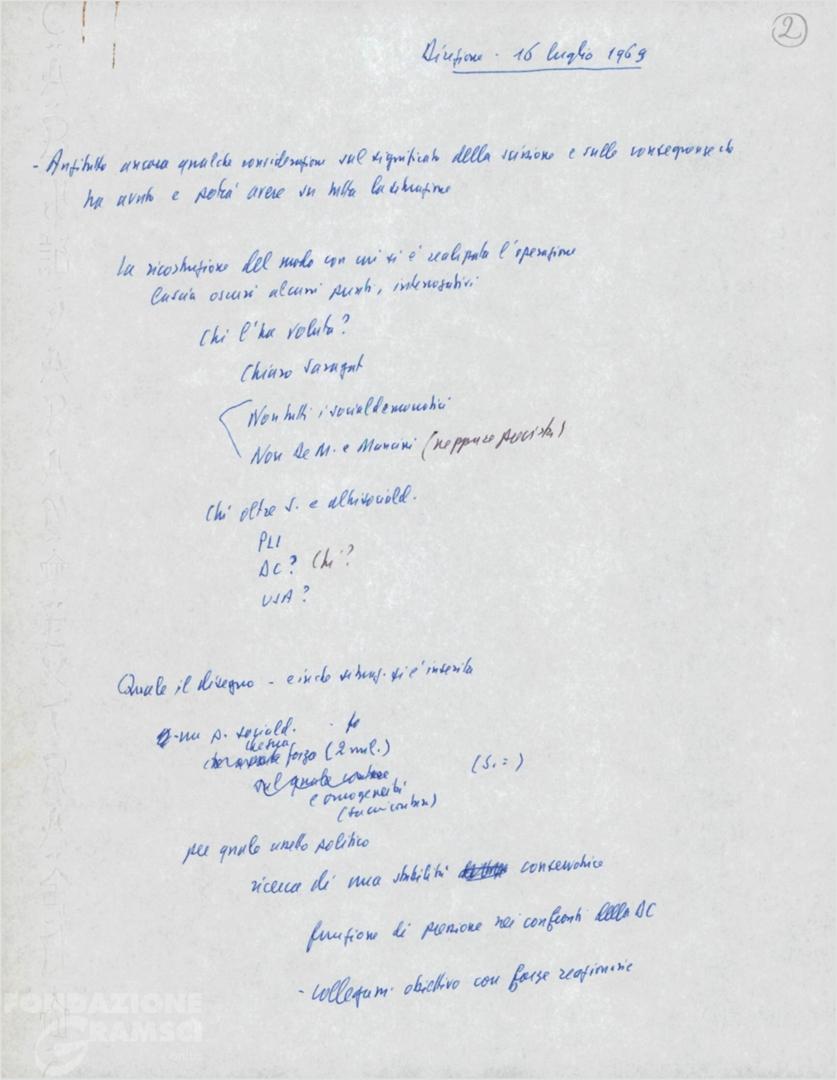 2
Direzione - 16 luglio 1969
- Anzitutto ancora qualche considerazione sul significato della scissione e sulle conseguenze che
ha avuto e potrà avere su tutta la situazione
La ricostruzione del modo con cui si è realizzata l'operazione
lascia oscuri alcuni punti, interrogativi
Chi l'ha voluta?
Chiaro Saragat
Non tutti i socialdemocratici
Non De M. e Mancini (neppure
Chi oltre S. e altri sociald.
PLI
DC? Chi?
USA?
Quale il disegno - e in che situaz. si è inserita
- un p. sociald.
forza (2 mil.)
sul quale contare
e omogeneità
(S. = )
per quale anello politico
ricerca di una stabilità conservatrice
funzione di pressione nei confronti della DC
- collegam. obiettivo con forze reazionarie
FONDAZIONE
GRAMSCI